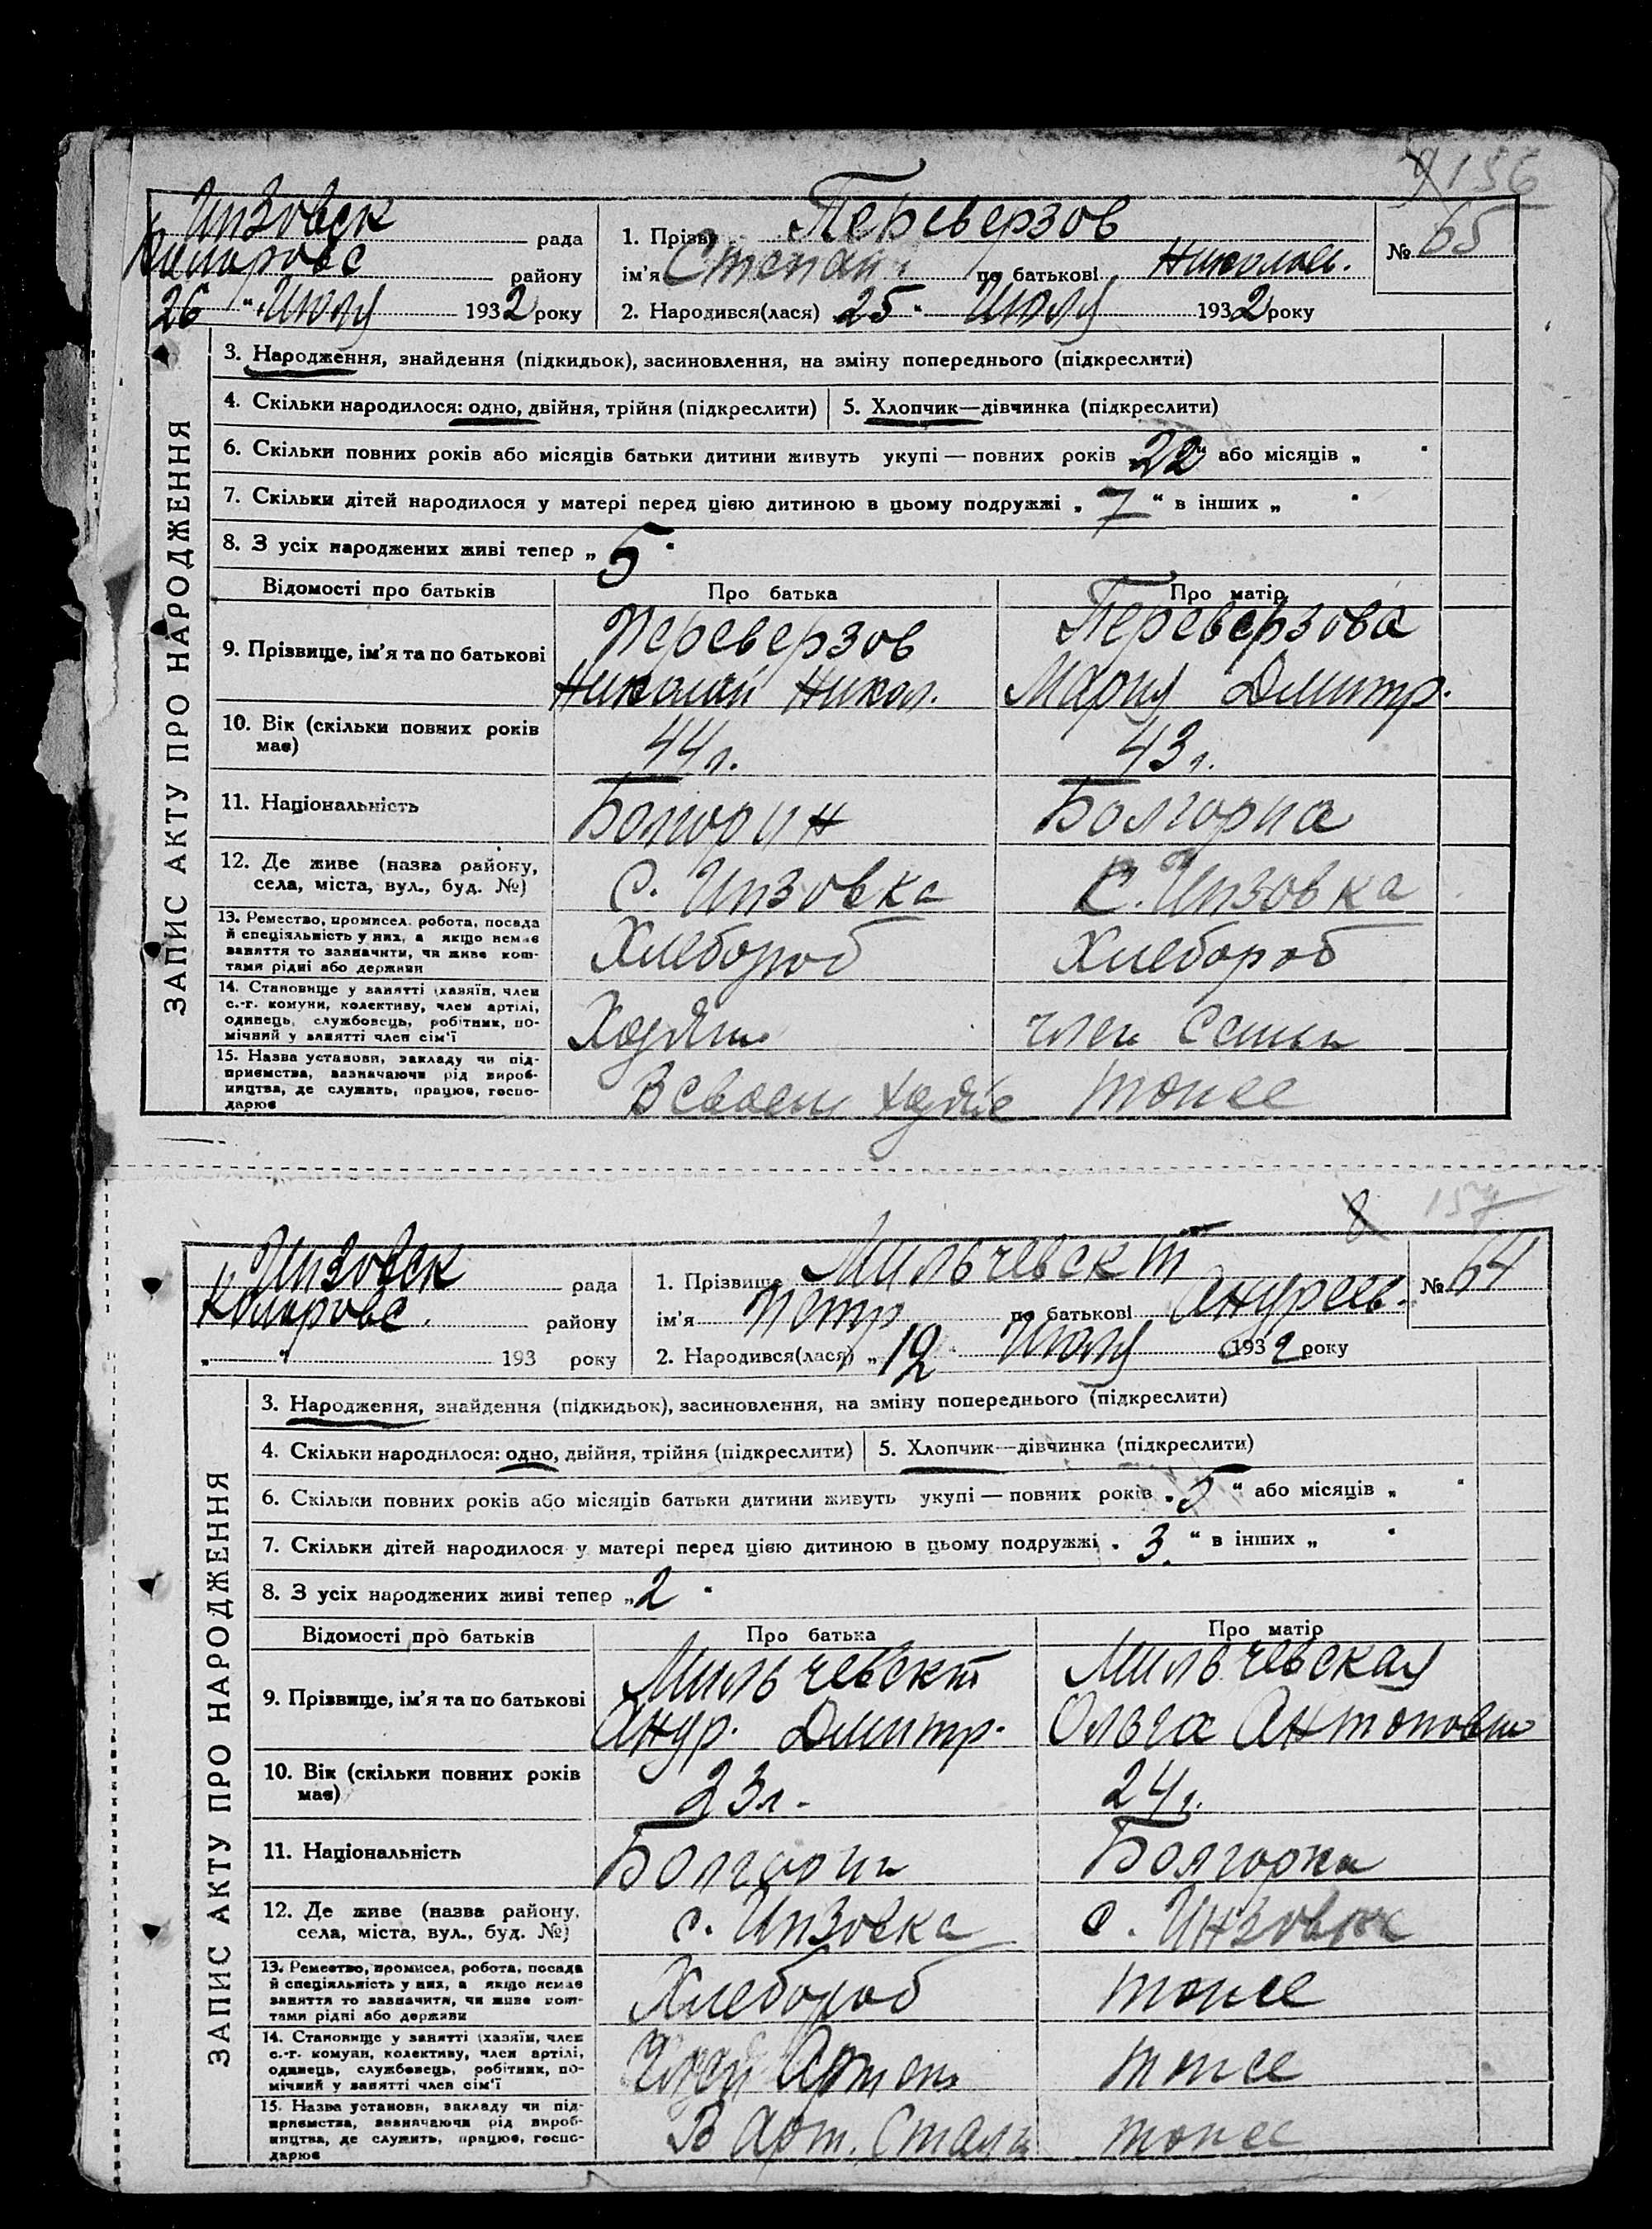 156
Инзовск рада
Коларовс району
26 " Июля 1932 року
1. Прізв Переверзов
ім'я Степан по батькові Николаев.
2. Народився(лася) 25 " Июля 1932 року
№ 65
ЗАПИС АКТУ ПРО НАРОДЖЕННЯ
3. Народження, знайдення (підкидьок), засиновлення, на зміну попереднього (підкреслити)
4. Скільки народилося: одно, двійня, трійня (підкреслити) 5. Хлопчик—дівчинка (підкреслити)
6. Скільки повних років або місяців батьки дитини живуть укупі — повних років 22 або місяців „ "
7. Скільки дітей народилося у матері перед цією дитиною в цьому подружжі „ 7 " в інших „ "
8. З усіх народжених живі тепер „ 5 "
Відомості про батьків Про батька Про матір
9. Прізвище, ім'я та по батькові Переверзов Николай Никол. Переверзова Мария Дмитр.
10. Вік (скільки повних років має) 44 л. 43 л.
11. Національність Болгорин Болгорка
12. Де живе (назва району, села, міста, вул., буд. №) С. Инзовка С. Инзовка
13. Ремество, промисел, робота, посада й спеціяльність у них, а якщо немає заняття то зазначити, чи живе коштами рідні або держави Хлебороб Хлебороб
14. Становище у занятті (хазяїн, член с.-г. комуни, колективу, член артілі, одинець, службовець, робітник, помічний у занятті член сім'ї Хозяин член Семьи
15. Назва установи, закладу чи підприємства, зазначаючи рід виробництва, де служить, працює, господарює В своем хозяйс тоже
157
Инзовск рада
Коларовс. району
„ " 193 року
1. Прізвище Мильчевский
ім'я Петр по батькові Андреев.
2. Народився(лася) „ 12 " Июля 1932 року
№ 64
ЗАПИС АКТУ ПРО НАРОДЖЕННЯ
3. Народження, знайдення (підкидьок), засиновлення, на зміну попереднього (підкреслити)
4. Скільки народилося: одно, двійня, трійня (підкреслити) 5. Хлопчик—дівчинка (підкреслити)
6. Скільки повних років або місяців батьки дитини живуть укупі — повних років „ 5 " або місяців „ "
7. Скільки дітей народилося у матері перед цією дитиною в цьому подружжі „ 3 " в інших „ "
8. З усіх народжених живі тепер „ 2 "
Відомості про батьків Про батька Про матір
9. Прізвище, ім'я та по батькові Мильчевский Андр. Дмитр. Мильчевская Ольга Антоновн
10. Вік (скільки повних років має) 23 л. 24 л.
11. Національність Болгорин Болгорка
12. Де живе (назва району, села, міста, вул., буд. №) с. Инзовка с. Инзовка
13. Ремество, промисел, робота, посада й спеціяльність у них, а якщо немає заняття то зазначити, чи живе коштами рідні або держави Хлебороб тоже
14. Становище у занятті (хазяїн, член с.-г. комуни, колективу, член артілі, одинець, службовець, робітник, помічний у занятті член сім'ї Член Артели тоже
15. Назва установи, закладу чи підприємства, зазначаючи рід виробництва, де служить, працює, господарює В Арт. Сталин тоже